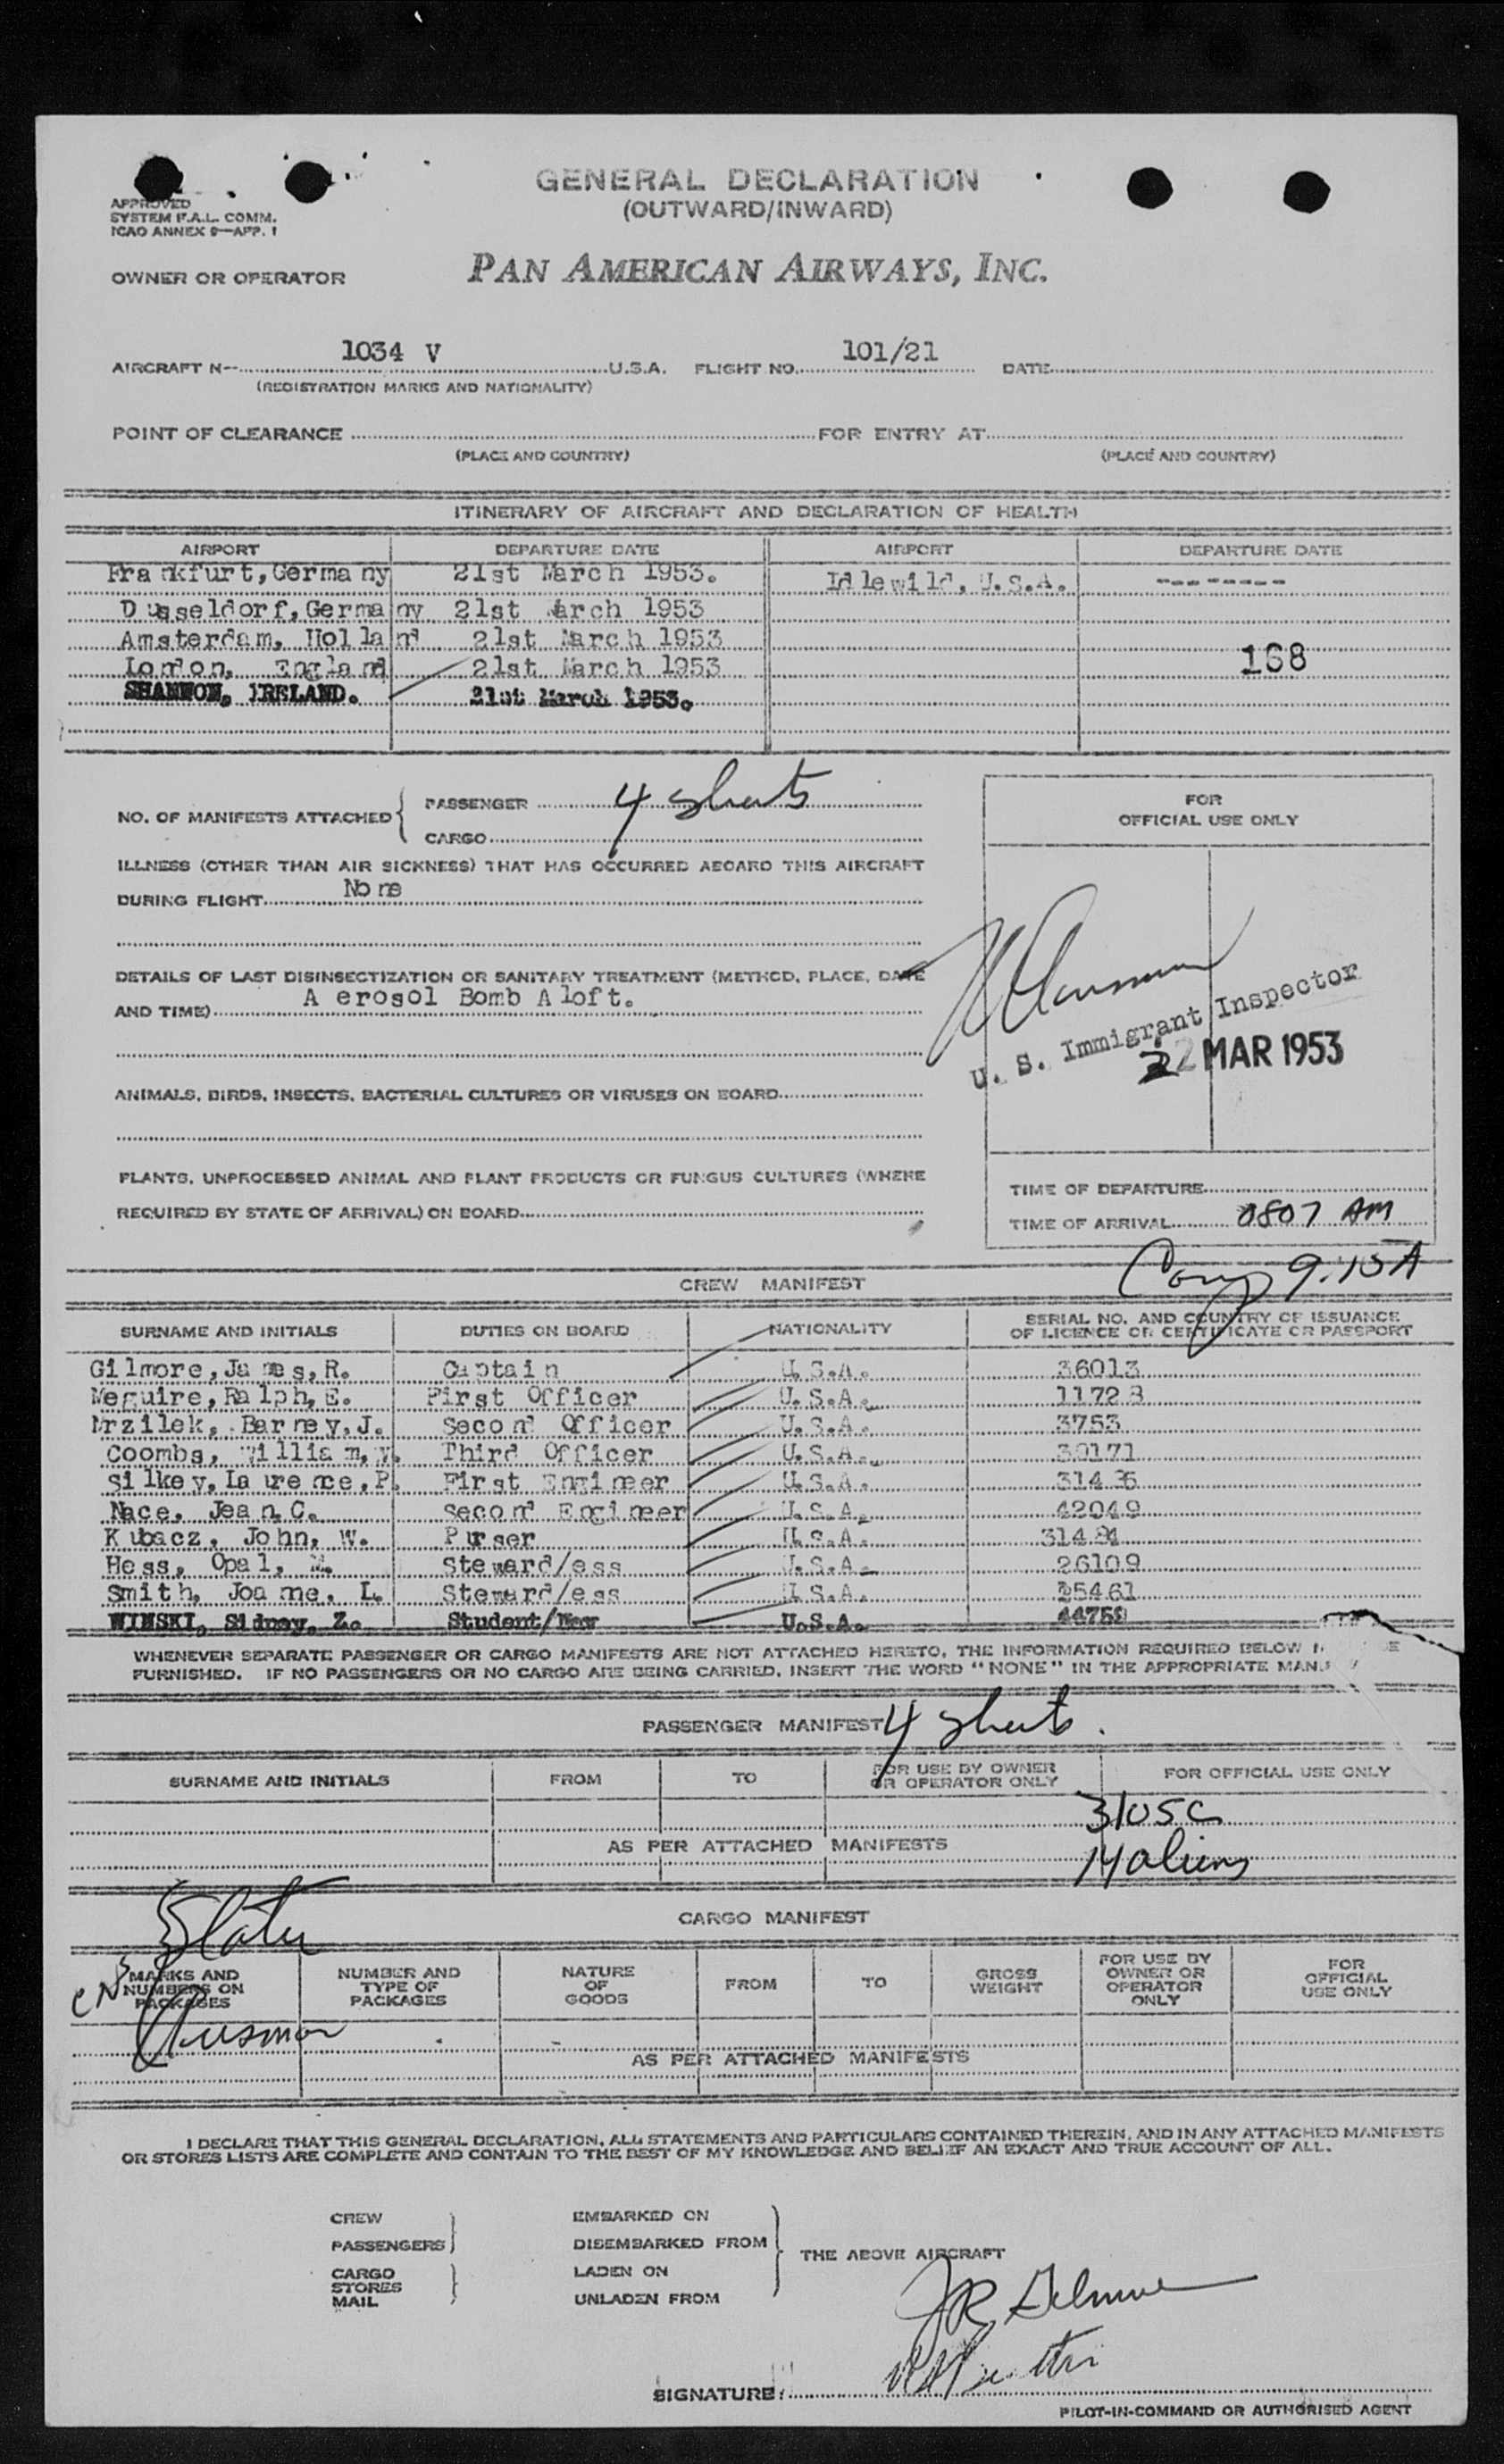 GENERAL DECLARATION
(OUTWARD/INWARD)
APPROVED
SYSTEM F.A.L. COMM.
ICAO ANNEX 9—APP. 1
OWNER OR OPERATOR PAN AMERICAN AIRWAYS, INC.
AIRCRAFT N-- 1034 V U.S.A. FLIGHT NO. 101/21 DATE
(REGISTRATION MARKS AND NATIONALITY)
POINT OF CLEARANCE FOR ENTRY AT
(PLACE AND COUNTRY) (PLACE AND COUNTRY)
ITINERARY OF AIRCRAFT AND DECLARATION OF HEALTH
AIRPORT DEPARTURE DATE AIRPORT DEPARTURE DATE
Frankfurt, Germany 21st March 1953. Idlewild, U.S.A. --------
Dusseldorf, Germany 21st March 1953
Amsterdam, Holland 21st March 1953
London, England 21st March 1953 168
SHANNON, IRELAND. 21st March 1953.
NO. OF MANIFESTS ATTACHED { PASSENGER 4 sheets
CARGO
ILLNESS (OTHER THAN AIR SICKNESS) THAT HAS OCCURRED ABOARD THIS AIRCRAFT
DURING FLIGHT None
DETAILS OF LAST DISINSECTIZATION OR SANITARY TREATMENT (METHOD, PLACE, DATE
AND TIME) Aerosol Bomb Aloft.
ANIMALS, BIRDS, INSECTS, BACTERIAL CULTURES OR VIRUSES ON BOARD
PLANTS, UNPROCESSED ANIMAL AND PLANT PRODUCTS OR FUNGUS CULTURES (WHERE
REQUIRED BY STATE OF ARRIVAL) ON BOARD
FOR
OFFICIAL USE ONLY
U. S. Immigrant Inspector
22 MAR 1953
TIME OF DEPARTURE
TIME OF ARRIVAL 0807 AM
Comp 9.15A
CREW MANIFEST
SURNAME AND INITIALS DUTIES ON BOARD NATIONALITY SERIAL NO. AND COUNTRY OF ISSUANCE
OF LICENCE OR CERTIFICATE OR PASSPORT
Gilmore, James, R. Captain U.S.A. 36013
Meguire, Ralph, E. First Officer U.S.A. 11728
Mrzilek, Barney, J. Second Officer U.S.A. 3753
Coombs, William, W. Third Officer U.S.A. 30171
Silkey, Laurence, P. First Engineer U.S.A. 31436
Nace, Jean, C. Second Engineer U.S.A. 42049
Kubacz, John, W. Purser U.S.A. 31484
Hess, Opal, M. Steward/ess U.S.A. 26109
Smith, Joanne, L. Steward/ess U.S.A. 25461
WINSKI, Sidney, Z. Student/Nav U.S.A. 44758
WHENEVER SEPARATE PASSENGER OR CARGO MANIFESTS ARE NOT ATTACHED HERETO, THE INFORMATION REQUIRED BELOW
FURNISHED. IF NO PASSENGERS OR NO CARGO ARE BEING CARRIED, INSERT THE WORD "NONE" IN THE APPROPRIATE
PASSENGER MANIFEST 4 sheets.
SURNAME AND INITIALS FROM TO FOR USE BY OWNER
OR OPERATOR ONLY FOR OFFICIAL USE ONLY
31 USC
AS PER ATTACHED MANIFESTS
14 aliens
Slater
CARGO MANIFEST
MARKS AND
NUMBERS ON
PACKAGES NUMBER AND
TYPE OF
PACKAGES NATURE
OF
GOODS FROM TO GROSS
WEIGHT FOR USE BY
OWNER OR
OPERATOR
ONLY FOR
OFFICIAL
USE ONLY
AS PER ATTACHED MANIFESTS
I DECLARE THAT THIS GENERAL DECLARATION, ALL STATEMENTS AND PARTICULARS CONTAINED THEREIN, AND IN ANY ATTACHED MANIFESTS
OR STORES LISTS ARE COMPLETE AND CONTAIN TO THE BEST OF MY KNOWLEDGE AND BELIEF AN EXACT AND TRUE ACCOUNT OF ALL.
CREW EMBARKED ON
PASSENGERS DISEMBARKED FROM
THE ABOVE AIRCRAFT
CARGO LADEN ON
STORES
MAIL UNLADEN FROM
JR Gilmore
SIGNATURE:
PILOT-IN-COMMAND OR AUTHORISED AGENT